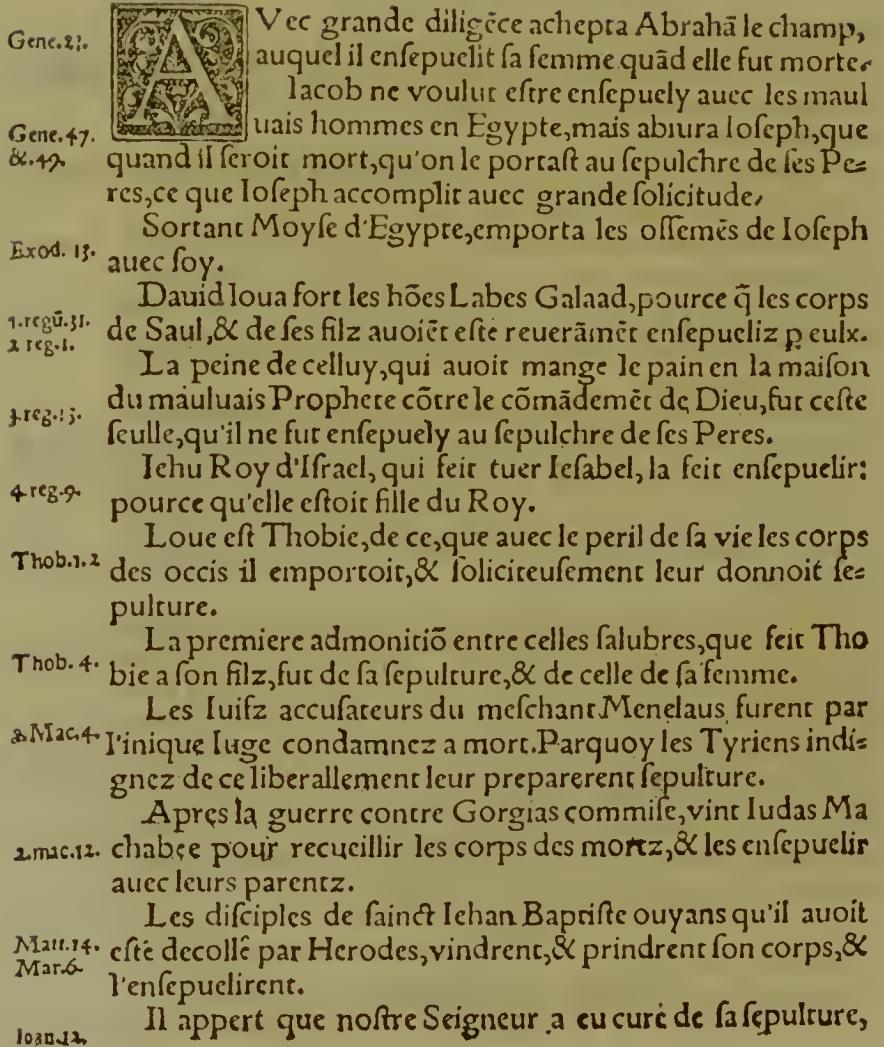 Gene.23. AVec grande diligẽce achepta Abrahã le champ,
auquel il enſepuelit ſa femme quãd elle fut morte.
Iacob ne voulut eſtre enſepuely auec les maul
Gene.47. uais hommes en Egypte,mais abiura Ioſeph,que
&.49. quand il ſeroit mort,qu'on le portaſt au ſepulchre de ſes Pe=
res,ce que Ioſeph accomplit auec grande ſolicitude,
Sortant Moyſe d'Egypte,emporta les oſſemẽs de Ioſeph
Exod. 13. auec ſoy.
Dauid loua fort les hões Labes Galaad,pource q̃ les corps
1.regũ.31. de Saul,& de ſes filz auoiẽt eſte reuerãmẽt enſepueliz p eulx.
2 reg.1.
La peine de celluy,qui auoit mange le pain en la maiſon
3.reg.13. du mauluais Prophete cõtre le cõmãdemẽt de Dieu,fut ceſte
ſeulle,qu'il ne fut enſepuely au ſepulchre de ſes Peres.
Iehu Roy d'Iſrael, qui feit tuer Ieſabel, la feit enſepuelir:
4.reg.9. pource qu'elle eſtoit fille du Roy.
Loue eſt Thobie,de ce,que auec le peril de ſa vie les corps
Thob.1.2 des occis il emportoit,& ſoliciteuſement leur donnoit ſe=
pulture.
La premiere admonitiõ entre celles ſalubres,que feit Tho
Thob. 4. bie a ſon filz,fut de ſa ſepulture,& de celle de ſa femme.
Les Iuifz accuſateurs du meſchant Menelaus furent par
2.Mac.4. l'inique Iuge condamnez a mort.Parquoy les Tyriens indi=
gnez de ce liberallement leur preparerent ſepulture.
Apres la guerre contre Gorgias commiſe,vint Iudas Ma
2.mac.12. chabęe pour recueillir les corps des mortz,& les enſepuelir
auec leurs parentz.
Les diſciples de ſainct Iehan Baptiſte ouyans qu'il auoit
Matt.14. eſté decollé par Herodes,vindrent,& prindrent ſon corps,&
Mar.6. l'enſepuelirent.
Il appert que noſtre Seigneur a eu curé de ſa ſepulture,
Ioan.12.